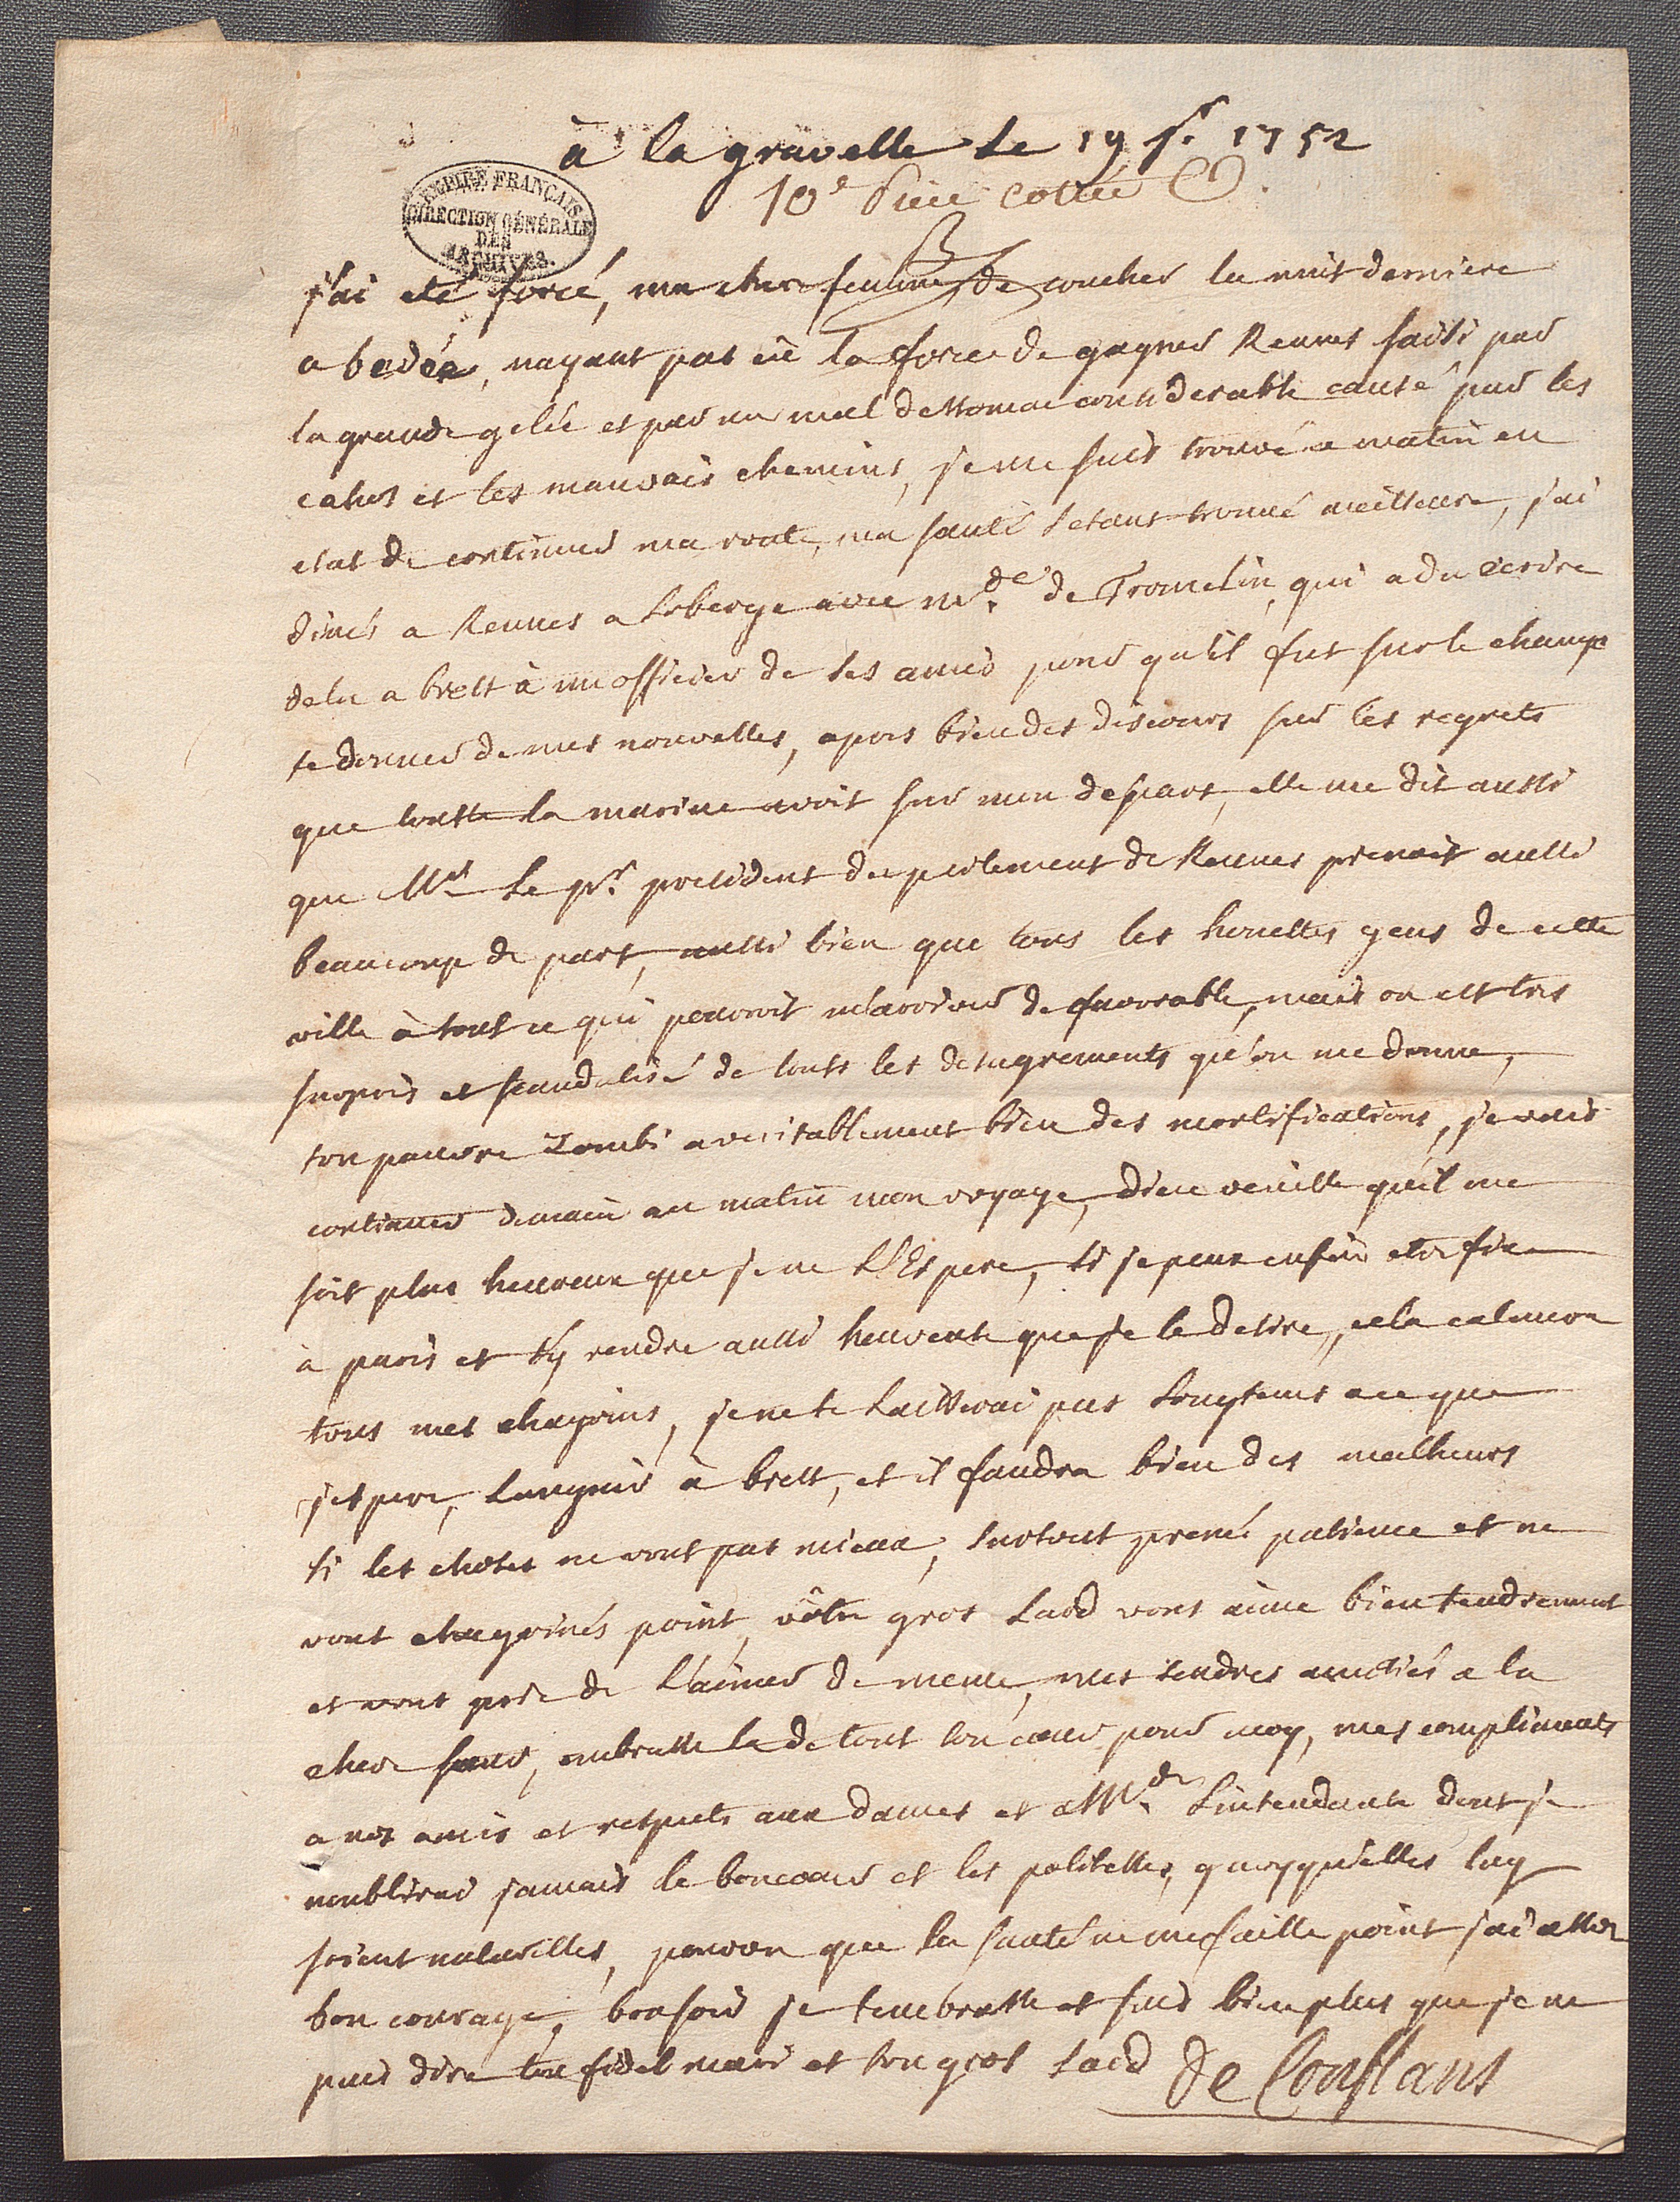 à la gravelle le 19 fr. 1752
10e Piece cottée
EMPIRE FRANÇAIS
DIRECTION GÉNÉRALE
DES
ARCHIVES.
j'ai eté forcé, ma chere femme, de coucher la nuit derniere
a bedée, nayant pas eü la force de gagner Rennes saisi par
la grande gelée et par un mal destomac considerable causé par les
cahos et les mauvais chemins, je me suis trouvé ce matin en
etat de continuer ma route, ma santé setant trouvé meilleure, j'ai
diné a Rennes a Loberge avec md.e de Tromelin, qui a du ecrire
dela a brest à un officier de ses amis pour qu'il fut sur le champ
te donner de mes nouvelles, apres bien des discours sur les regrets
que toutte la marine avoit sur mon depart, elle me dit aussi
que Mr le pr. president du parlement de Rennes prenoit aussi
beaucoup de part, aussi bien que tous les honestes gens de cette
ville à tout ce qui pouvoit m'arriver de favorable, mais on est tres
surpris et scandalisé de touts les desagrements qu'on me donne,
ton pauvre Zombi a veritablement bien des mortifications, je vais
continuer demain au matin mon voyage, dieu veuille qu'il me
soit plus heureux que je ne L'Espere, si je peux enfin etre fixe
à paris et ty rendre aussi heureuse que je le desire, cela calmera
tous mes chagrins, je ne te Laisserai pas Longtems a ce que
j'espere, Languir à brest, et il faudra bien des malheurs
si les choses ne vont pas mieux, surtout prenés patience et ne
vous chagrinés point, vôtre gros Laid vous aime bien tendrement
et vous prie de L'aimer de meme, mes tendres amitiés a la
chere sœur, embrasse la de tout ton cœur pour moy, mes compliments
a nos amis et respects aux dames et a Md.e Lintendante dont je
noublirai jamais le bon cœur et les politesses, quoyquelles luy
soient naturelles, pourvu que la santé ne me faille point j'ai assés
bon courage, bonsoir je tembrasse et suis bien plus que je ne
puis dire ton fidel mari et ton gros Laid de Conflans